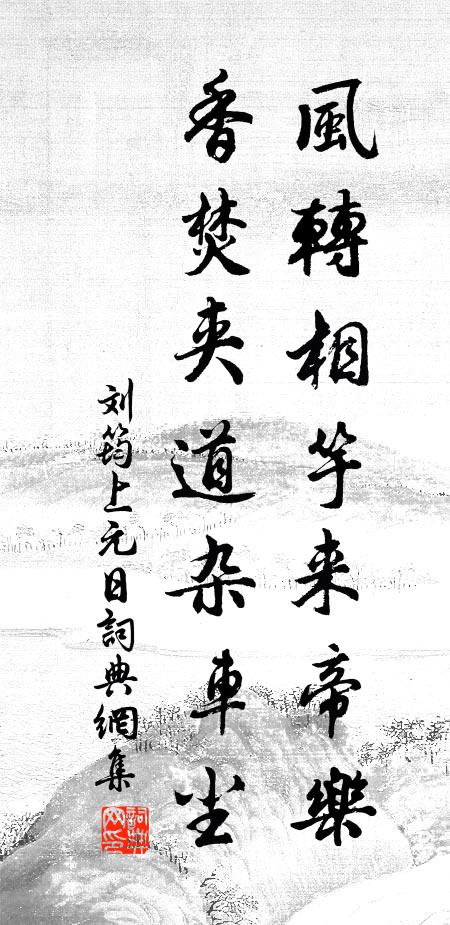 風轉相竿来帝樂
香焚夹道杂車尘
刘筠上元日詞典網集